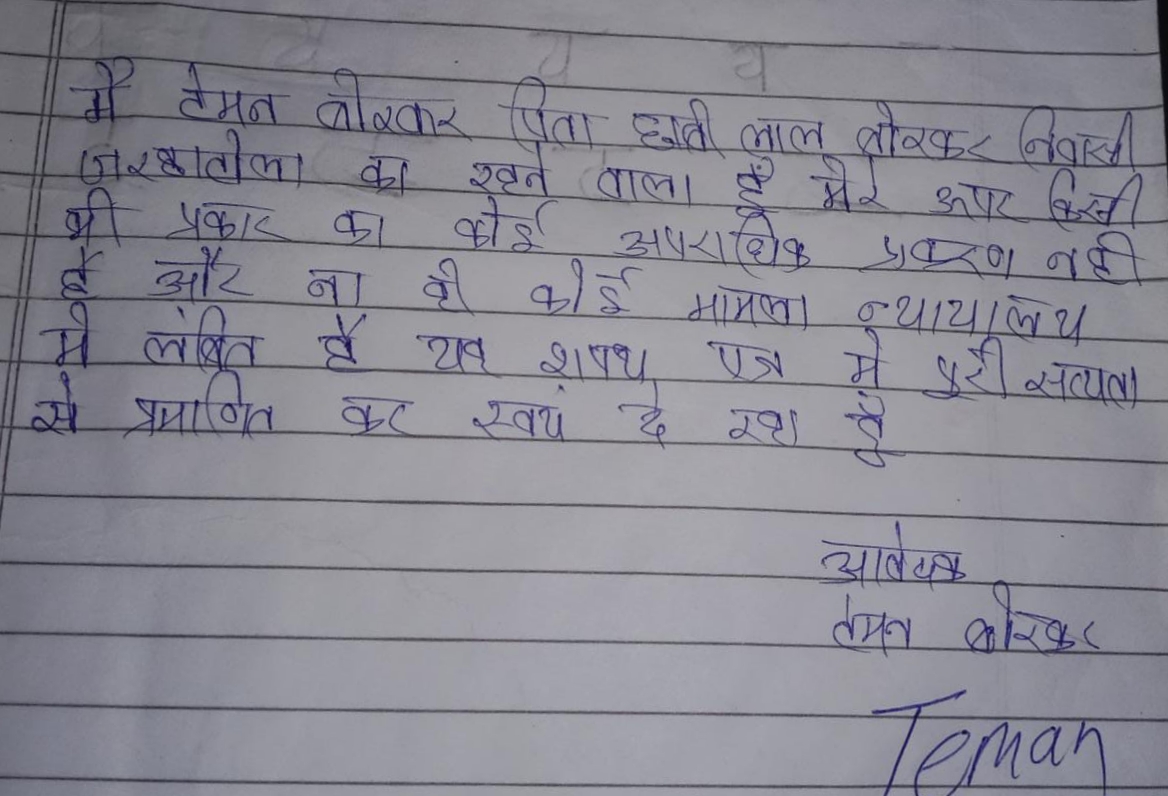 में टेमन बोरकार पिता छबी लाल बोरकर निवासी
जरहाटोला का रहने वाला हूँ मेरे ऊपर किसी
भी प्रकार का कोई अपराधिक प्रकरण नही
है और ना ही कोई मामला न्यायालय
मे लंबित है यह शपथ पत्र मे पुरी सत्यता
से प्रमाणित कर स्वयं दे रहा हूँ
आवेदक
टेमन बोरकर
Teman